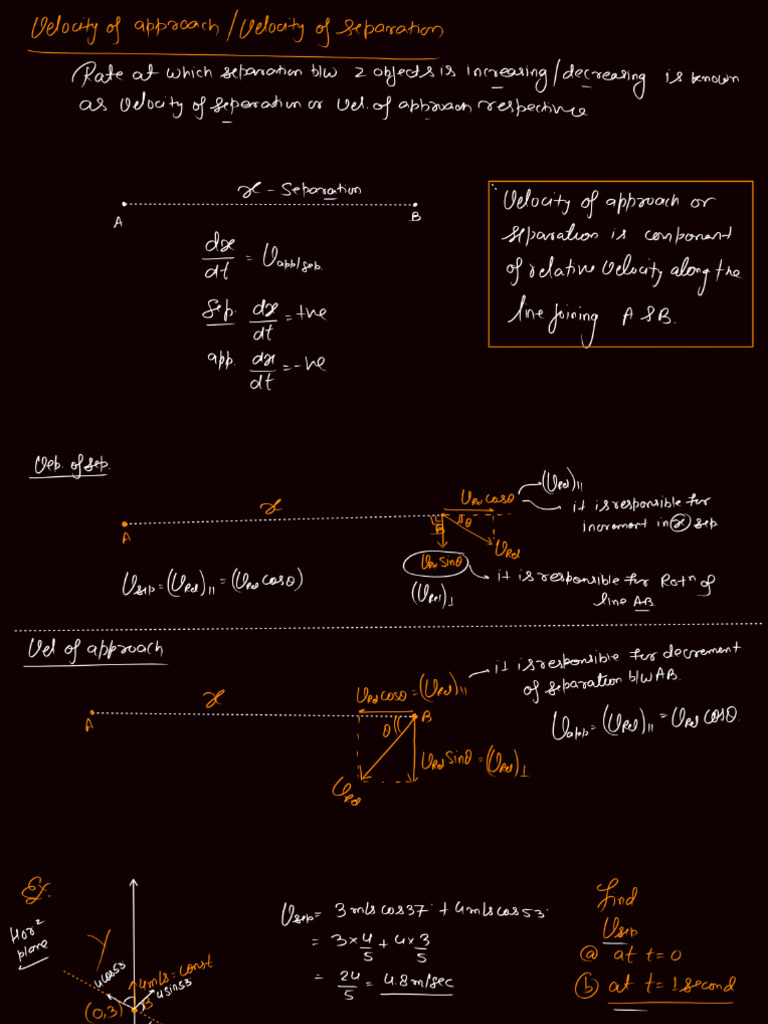 Velocity of approach / Velocity of separation
Rate at which separation b/w 2 objects is increasing/decreasing is known
as velocity of separation or vel. of approach respective
x - Separation
A B
dx/dt = V app/sep.
Sep. dx/dt = +ve
app. dx/dt = -ve
Velocity of approach or
separation is component
of relative velocity along the
line joining A & B.
Vel. of sep.
x
A
B
VRel cosθ
(VRel)||
it is responsible for
increment in x sep
θ
VRel
VRel sinθ
(VRel)⊥
it is responsible for Rotn of
line AB
Vsep = (VRel)|| = (VRel cosθ)
Vel of approach
x
A
VRel cosθ = (VRel)||
B
θ
VRel
VRel sinθ = (VRel)⊥
it is responsible for decrement
of separation b/w AB.
Vapp = (VRel)|| = VRel cosθ.
Ex.
Horz
plane
Y
4cos53
4m/s = const
4sin53
(0,3)
Vsep = 3m/s cos37 + 4m/s cos53
= 3×4/5 + 4×3/5
= 24/5 = 4.8m/sec
find
Vsep
(a) at t=0
(b) at t=1 second